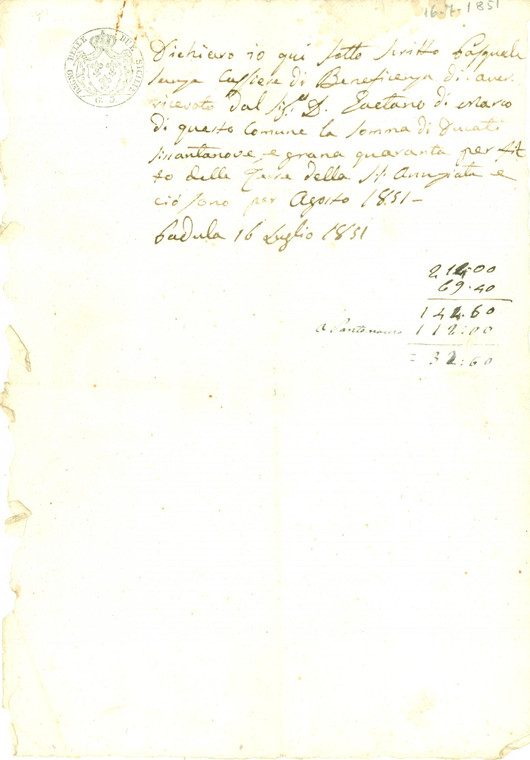 16-7-1851
REGNO DELLE DUE SICILIE
G. 3
Dichiaro io qui sotto scritto Pasquale
Cassiere di Beneficenza di aver
ricevuto dal Sig.r D. Gaetano di Marco
di questo Comune la somma di Ducati
sissantanove, e grana quaranta per fit
to delle Terre della SS. Anunziata e
ciò sono per Agosto 1851 –
Padula 16 Luglio 1851
212:00
69.40
142.60
112:00
= 32.60